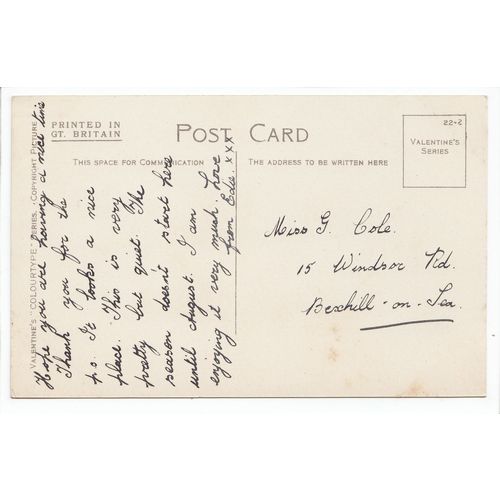 PRINTED IN
GT. BRITAIN
POST CARD
22-2
VALENTINE'S
SERIES
THIS SPACE FOR COMMUNICATION
THE ADDRESS TO BE WRITTEN HERE
VALENTINE'S "COLOURTYPE" SERIES. COPYRIGHT PICTURE
Hope you are having a nice time
Thank you for the
p.c. It looks a nice
place. This is very
pretty but quiet. The
season doesn't start here
until August. I am
enjoying it very much here
from Edie. xxx
Miss G. Cole.
15 Windsor Rd.
Bexhill-on-Sea.